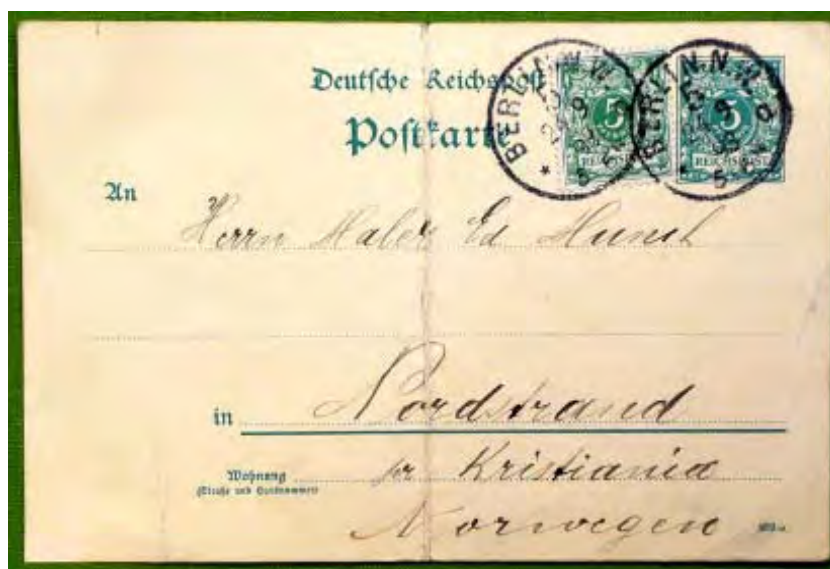 Deutsche Reichspost
Postkarte
BERLIN.N.W.
5
REICHSPOST
BERLIN.N.W.
5
REICHSPOST
An
Herrn Maler Ed Munch
in Nordstrand
Wohnung
(Straße und Hausnummer)
pr Kristiania
Norwegen